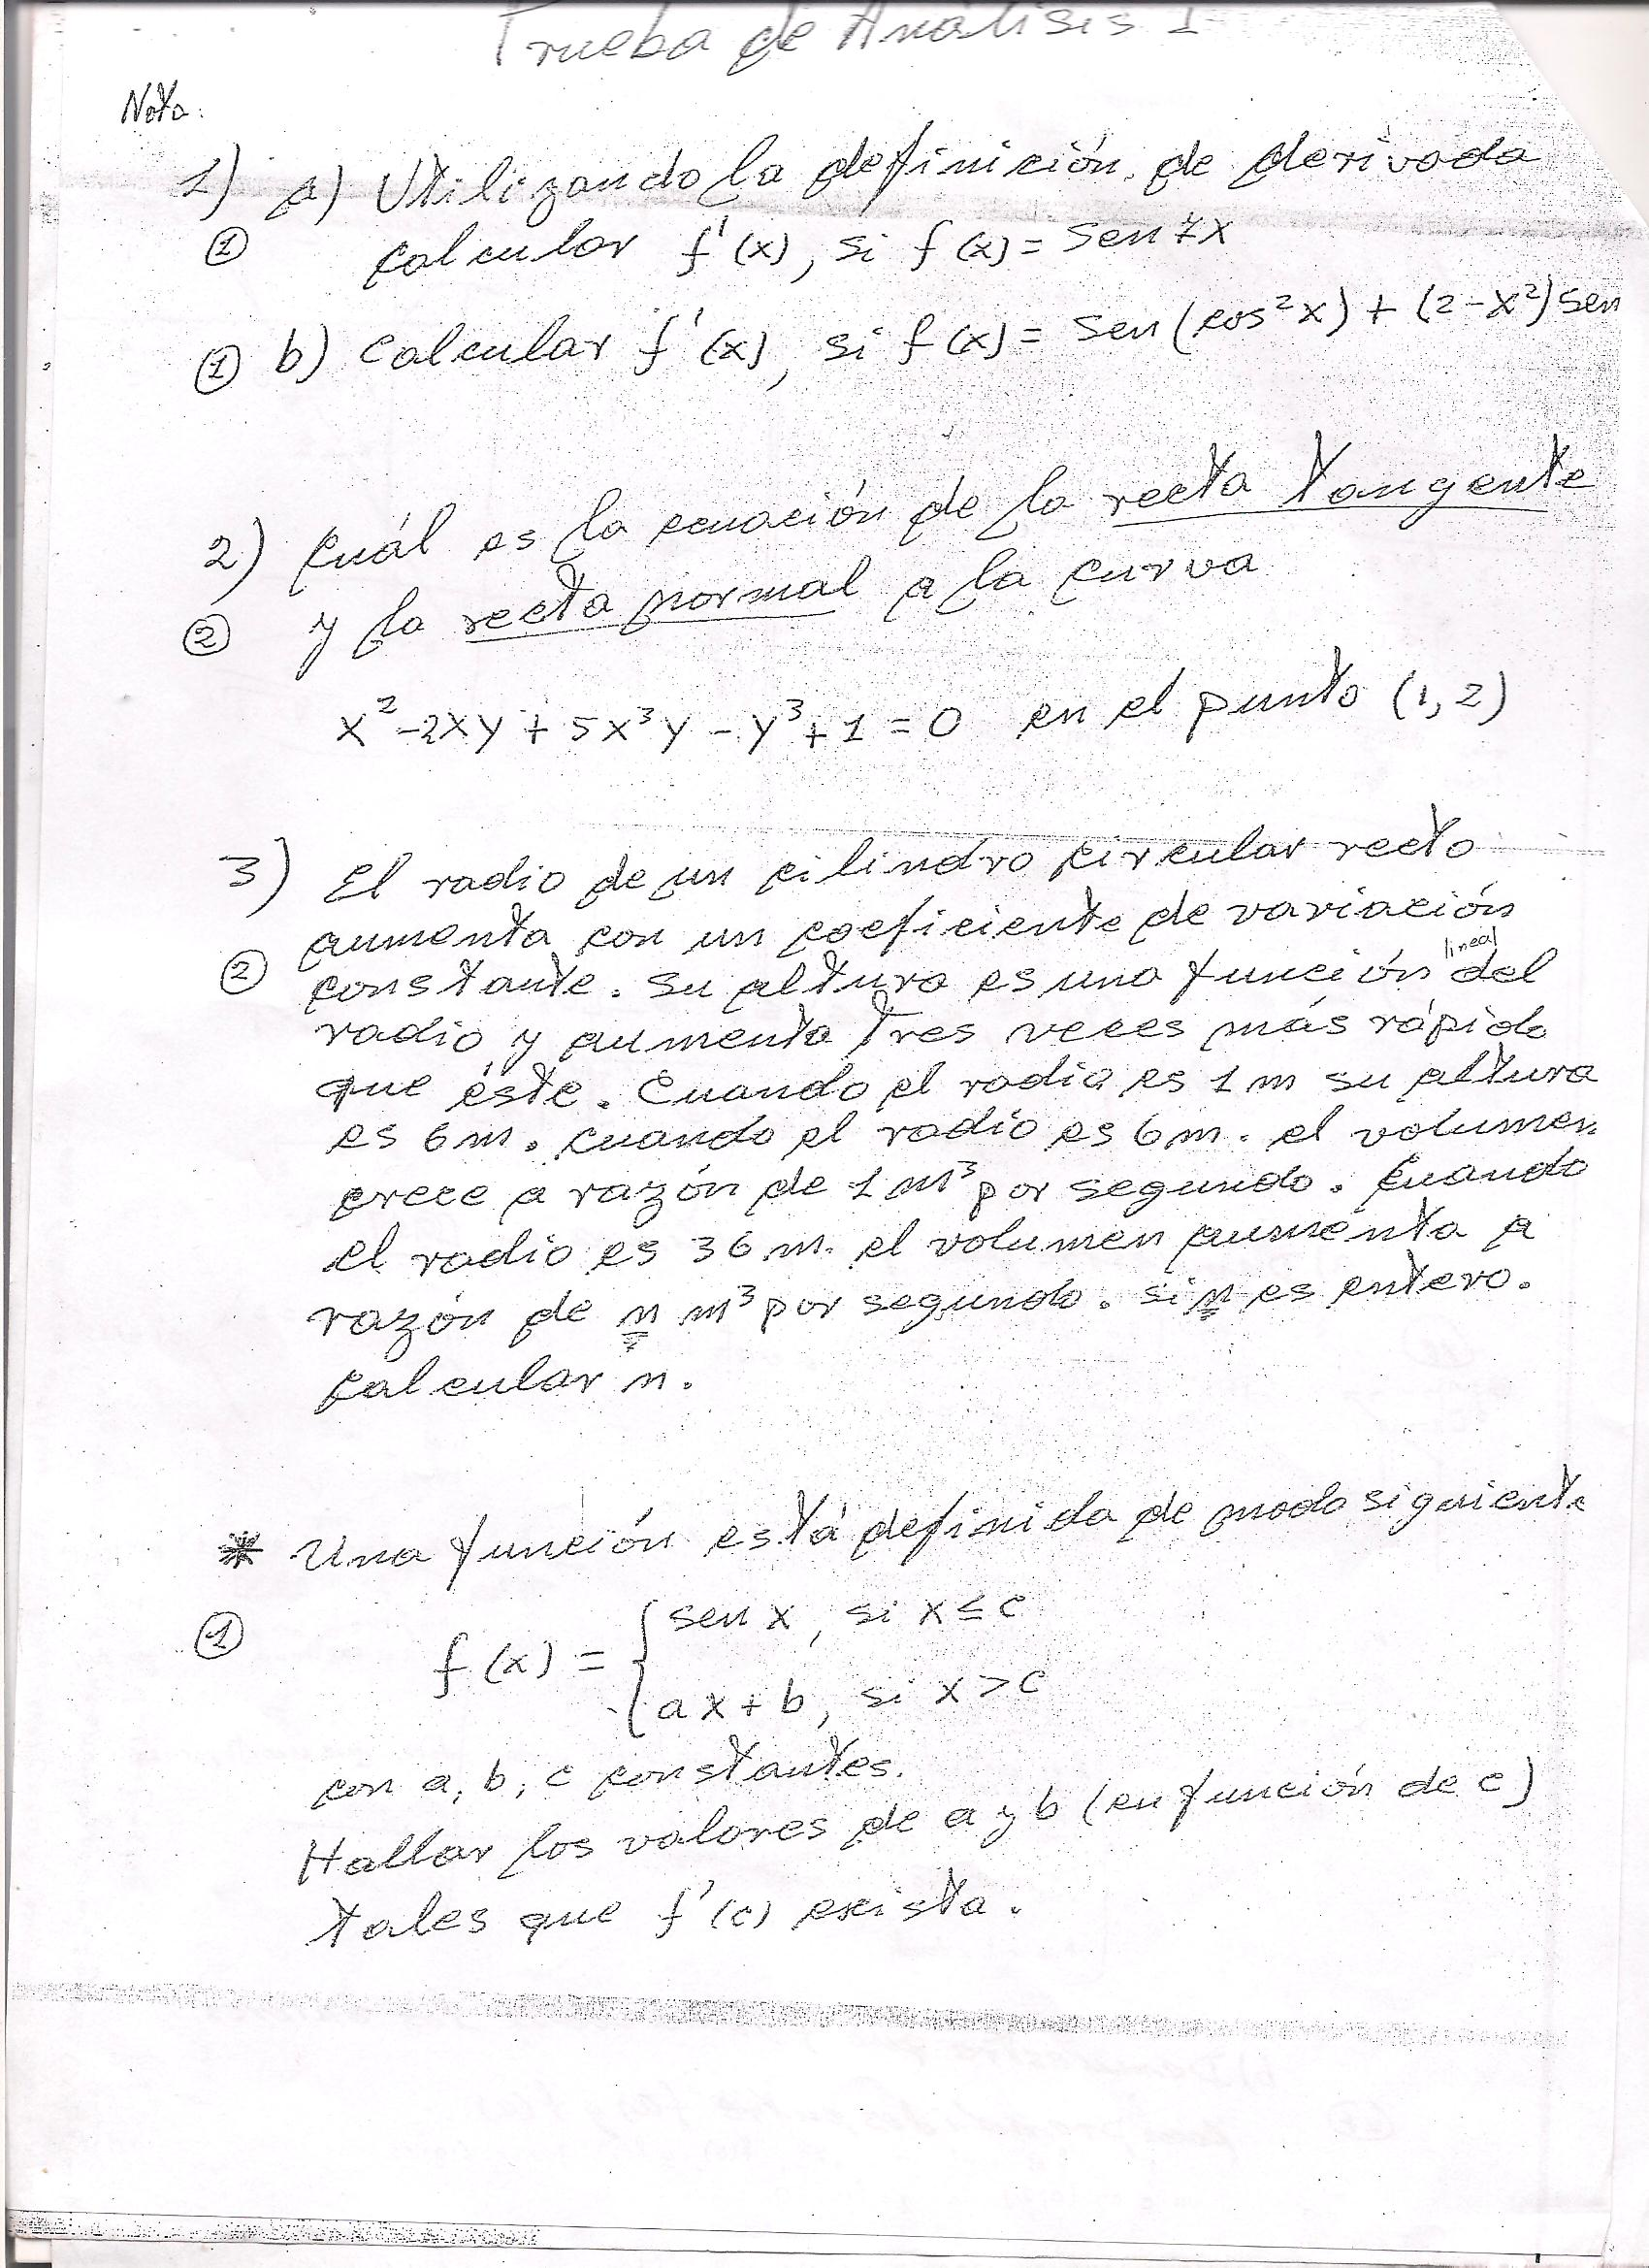 Prueba de Análisis 1
Nota:
1) a) Utilizando la definición de derivada
① calcular f'(x), si f(x) = sen 7x
① b) calcular f'(x), si f(x) = sen(cos²x) + (2-x²)sen
2) Cuál es la ecuación de la recta tangente
② y la recta normal a la curva
x² - 2xy + 5x³y - y³ + 1 = 0 en el punto (1, 2)
3) El radio de un cilindro circular recto
aumenta con un coeficiente de variación
② constante. Su altura es una función lineal del
radio y aumenta tres veces más rápido
que éste. Cuando el radio es 1 m su altura
es 6 m. cuando el radio es 6 m. el volumen
crece a razón de 1 m³ por segundo. Cuando
el radio es 36 m. el volumen aumenta a
razón de n m³ por segundo. si n es entero.
calcular n.
* Una función está definida de modo siguiente
① f(x) = { sen x, si x ≤ c
ax + b, si x > c
con a, b, c constantes.
Hallar los valores de a y b (en función de c)
tales que f'(c) exista.